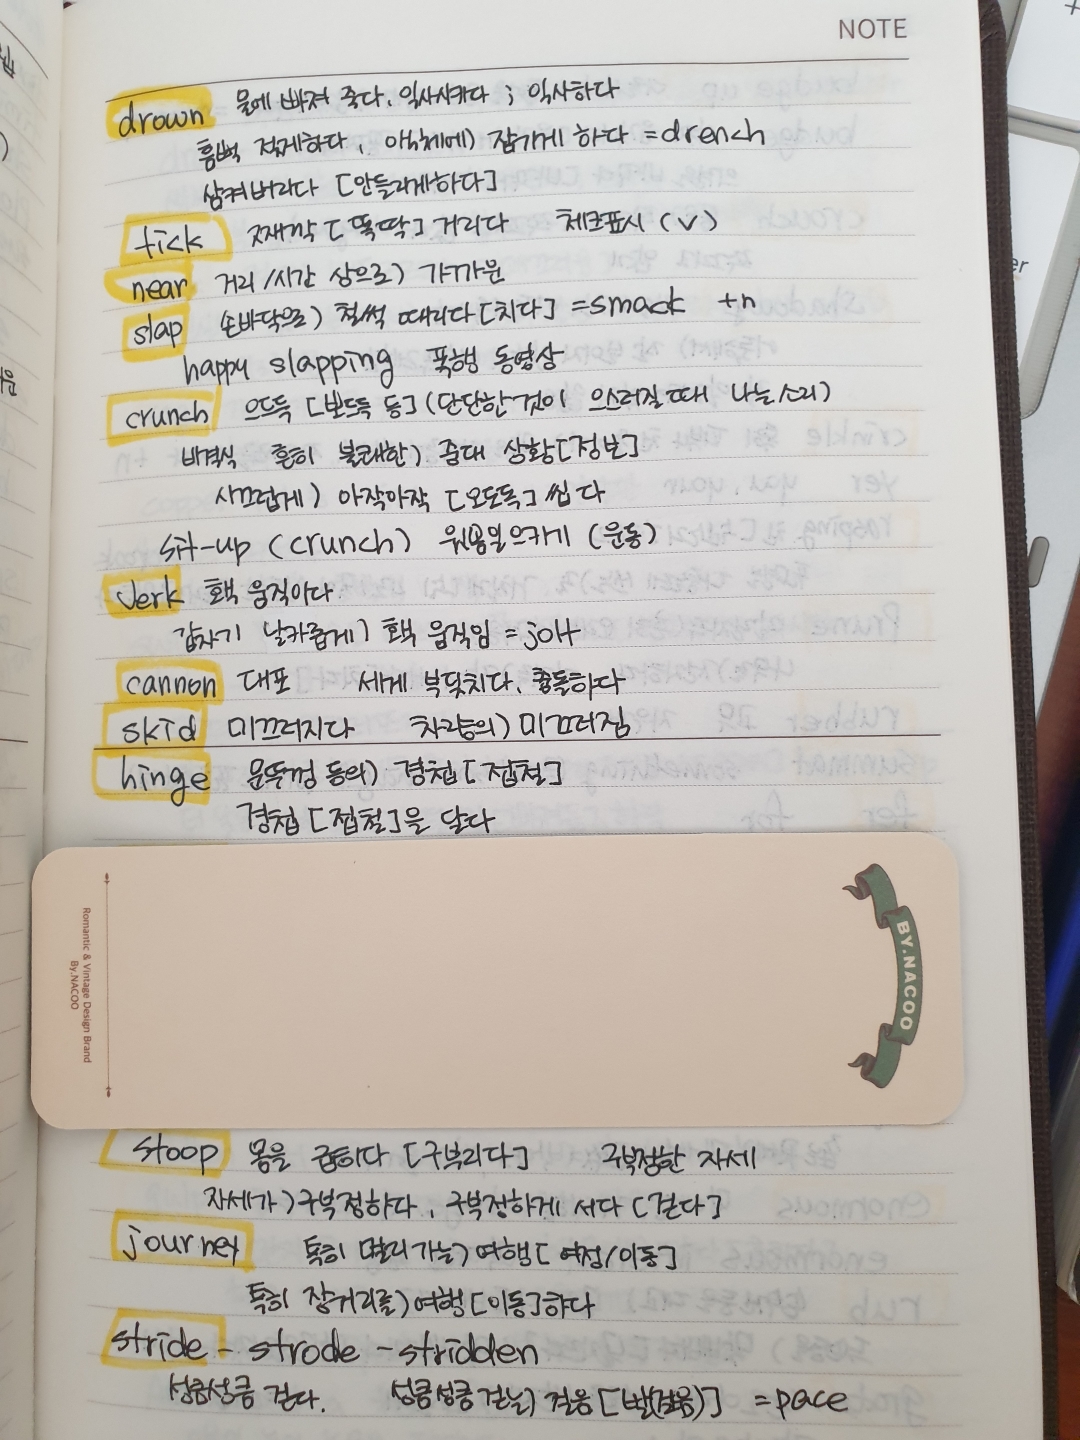 NOTE
drown 물에 빠져 죽다. 익사시키다 ; 익사하다
흠뻑 젖게하다, 액체에) 잠기게 하다 =drench
삼켜버리다 [안들리게하다]
tick 째깍[똑딱]거리다 체크표시 (v)
near 거리/시간 상으로) 가까운
slap 손바닥으로) 철썩 때리다[치다] =smack +n
happy slapping 폭행 동영상
crunch 으드득 [뽀드득 등] (단단한것이 으스러질때 나는소리)
비격식 흔히 불쾌한) 중대 상황[정보]
시끄럽게) 아작아작 [오도독] 씹다
sit-up (crunch) 윗몸일으키기 (운동)
Jerk 홱 움직이다.
갑자기 날카롭게) 홱 움직임 =jolt
cannon 대포 세게 부딪치다. 충돌하다
skid 미끄러지다 차량의) 미끄러짐
hinge 문뚜껑 등의) 경첩[접철]
경첩 [접철]을 달다
BY.NACOO
Romantic & Vintage Design Brand
By.NACOO
stoop 몸을 굽히다 [구부리다] 구부정한 자세
자세가) 구부정하다, 구부정하게 서다 [걷다]
journey 특히 멀리 가는) 여행[여정/이동]
특히 장거리를) 여행[이동]하다
stride - strode - stridden
성큼성큼 걷다. 성큼성큼 걷는) 걸음 =pace